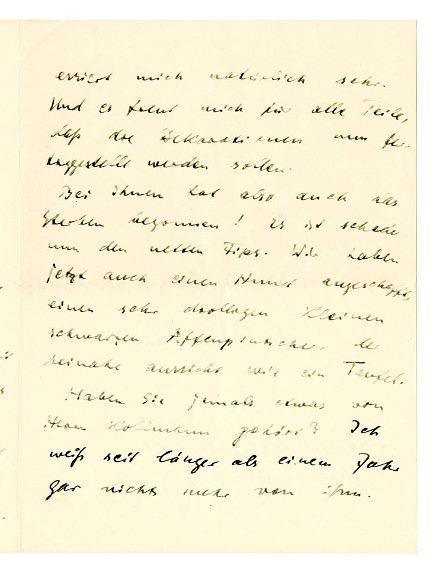 erregt mich natürlich sehr.
Und es freut mich für alle Teile,
daß die Dekorationen nun
gestellt werden sollen.
Bei Ihnen hat also auch das
Sterben begonnen! Es ist schade
um den netten Fips. Wir haben
jetzt auch einen Hund angeschafft,
einen sehr drolligen kleinen
schwarzen Affenpinscher, der
beinahe aussieht wie ein Teufel.
Haben Sie jemals etwas von
Herrn gehört? Ich
weiß seit länger als einem Jahr
gar nichts mehr von ihm.